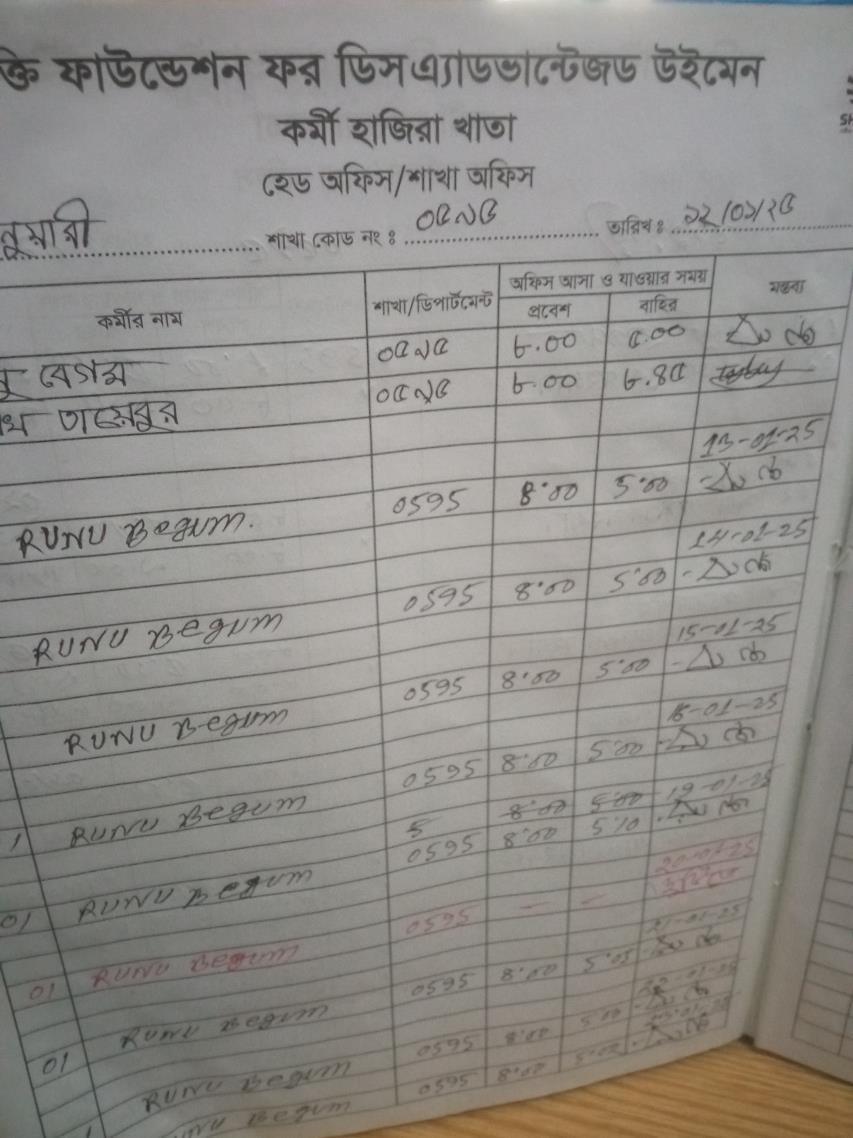 ক্তি ফাউন্ডেশন ফর ডিসএ্যাডভান্টেজড উইমেন
কর্মী হাজিরা খাতা
হেড অফিস/শাখা অফিস
নুয়ারী শাখা কোড নং ঃ ০৫৯৫ তারিখ ঃ ১২/০১/২৫
কর্মীর নাম শাখা/ডিপার্টমেন্ট অফিস আসা ও যাওয়ার সময় মন্তব্য
প্রবেশ বাহির
নু বেগম ০৫৯৫ ৮.০০ ৫.০০
০৫৯৫ ৮.০০ ৮.৪৫
13-01-25
RUNU Begum. 0595 8:00 5:00
14-01-25
RUNU Begum 0595 8:00 5:00
15-01-25
RUNU Begum 0595 8:00 5:00
-01-25
1 RUNU Begum 0595 8:00 5:00
5 8:00 5:00 19-01-25
01 RUNU Begum 0595 8:00 5:10
20-01-25
01 RUNU Begum 0595 — —
21-01-25
01 RUNU Begum 0595 8:00 5:05
22-01-25
RUNU Begum 0595 8:00 5:00
RUNU Begum 0595 8:00